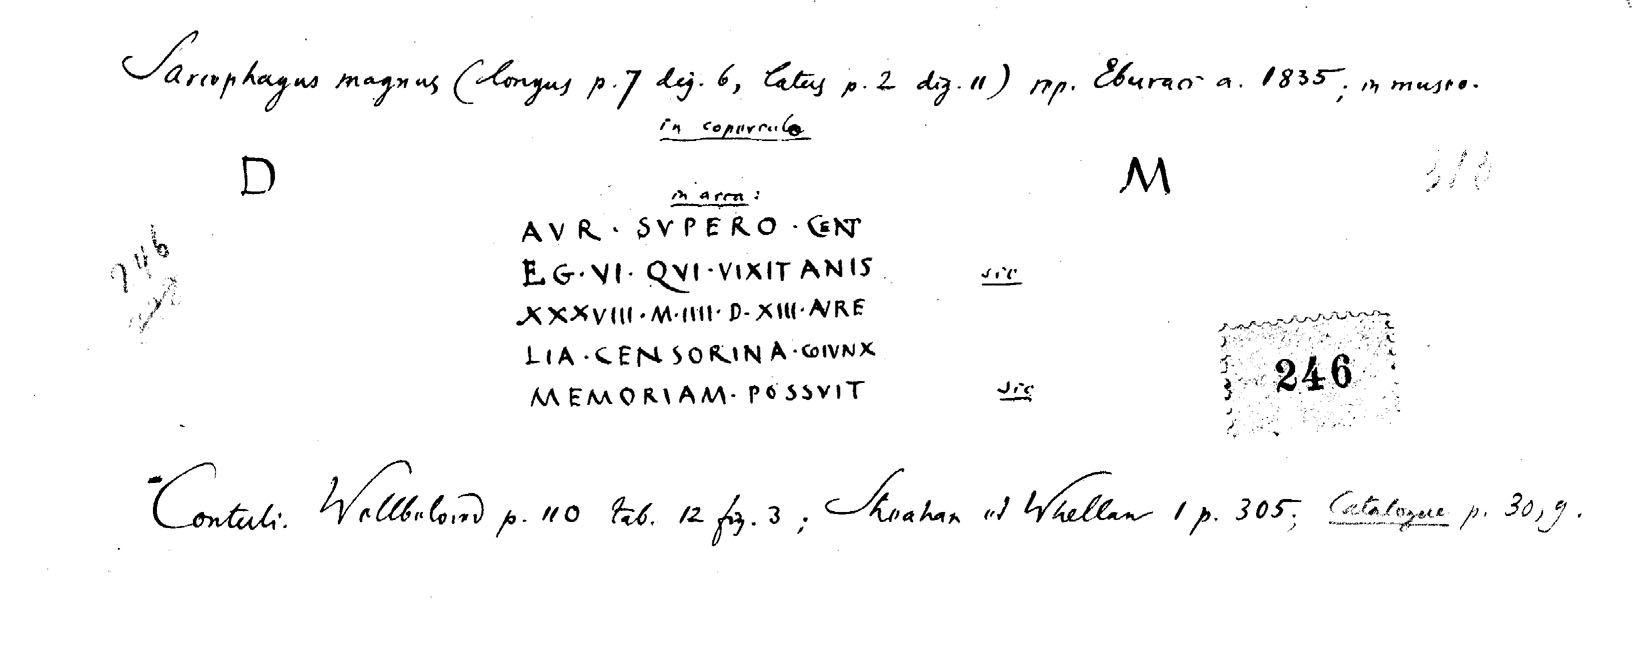 Sarcophagus magnus (longus p. 7 dig. 6, latus p. 2 dig. 11) rep. Eburaci a. 1835; in museo.
in coperculo
D M
313
in arca:
AVR · SVPERO · CENT
246
LEG · VI · QVI · VIXIT ANIS sic
XXXVIII · M · IIII · D · XIII · AVRE
LIA · CENSORINA · COIVNX
246
MEMORIAM · POSSVIT sic
Contuli. Wellbeloved p. 110 tab. 12 fig. 3; Sheahan et Whellan 1 p. 305; Catalogue p. 30, 9.